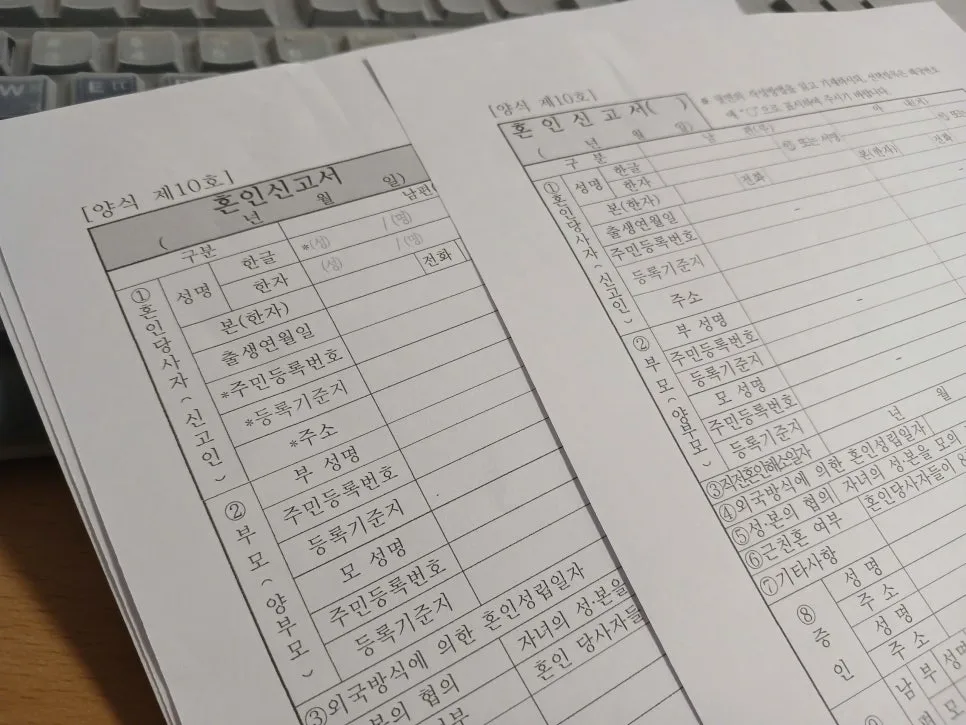 W
E
[양식 제10호]
혼인신고서
( 년 월 일)
구분
남편(
①혼인당사자(신고인)
성명
한글
*(성) / (명)
한자
(성) / (명)
본(한자)
전화
출생연월일
*주민등록번호
*등록기준지
*주소
②부모(양부모)
부 성명
주민등록번호
등록기준지
모 성명
주민등록번호
등록기준지
③외국방식에 의한 혼인성립일자
본의 협의
자녀의 성·본을
혼인 당사자들
[양식 제10호]
혼인신고서( )
( 년 월 일)
구 분
①혼인당사자(신고인)
성명
한글
한자
전화
⑩ 또는 서명
본(한자)
전화
본(한자)
출생연월일
-
주민등록번호
등록기준지
주소
②부모(양부모)
부 성명
주민등록번호
-
등록기준지
모 성명
주민등록번호
-
등록기준지
③직전혼인해소일자
년 월
④외국방식에 의한 혼인성립일자
⑤성·본의 협의
자녀의 성·본을 모의
⑥근친혼 여부
혼인당사자들이 8
⑦기타사항
⑧증인
성 명
주 소
성 명
주 소
남
부
성명
모